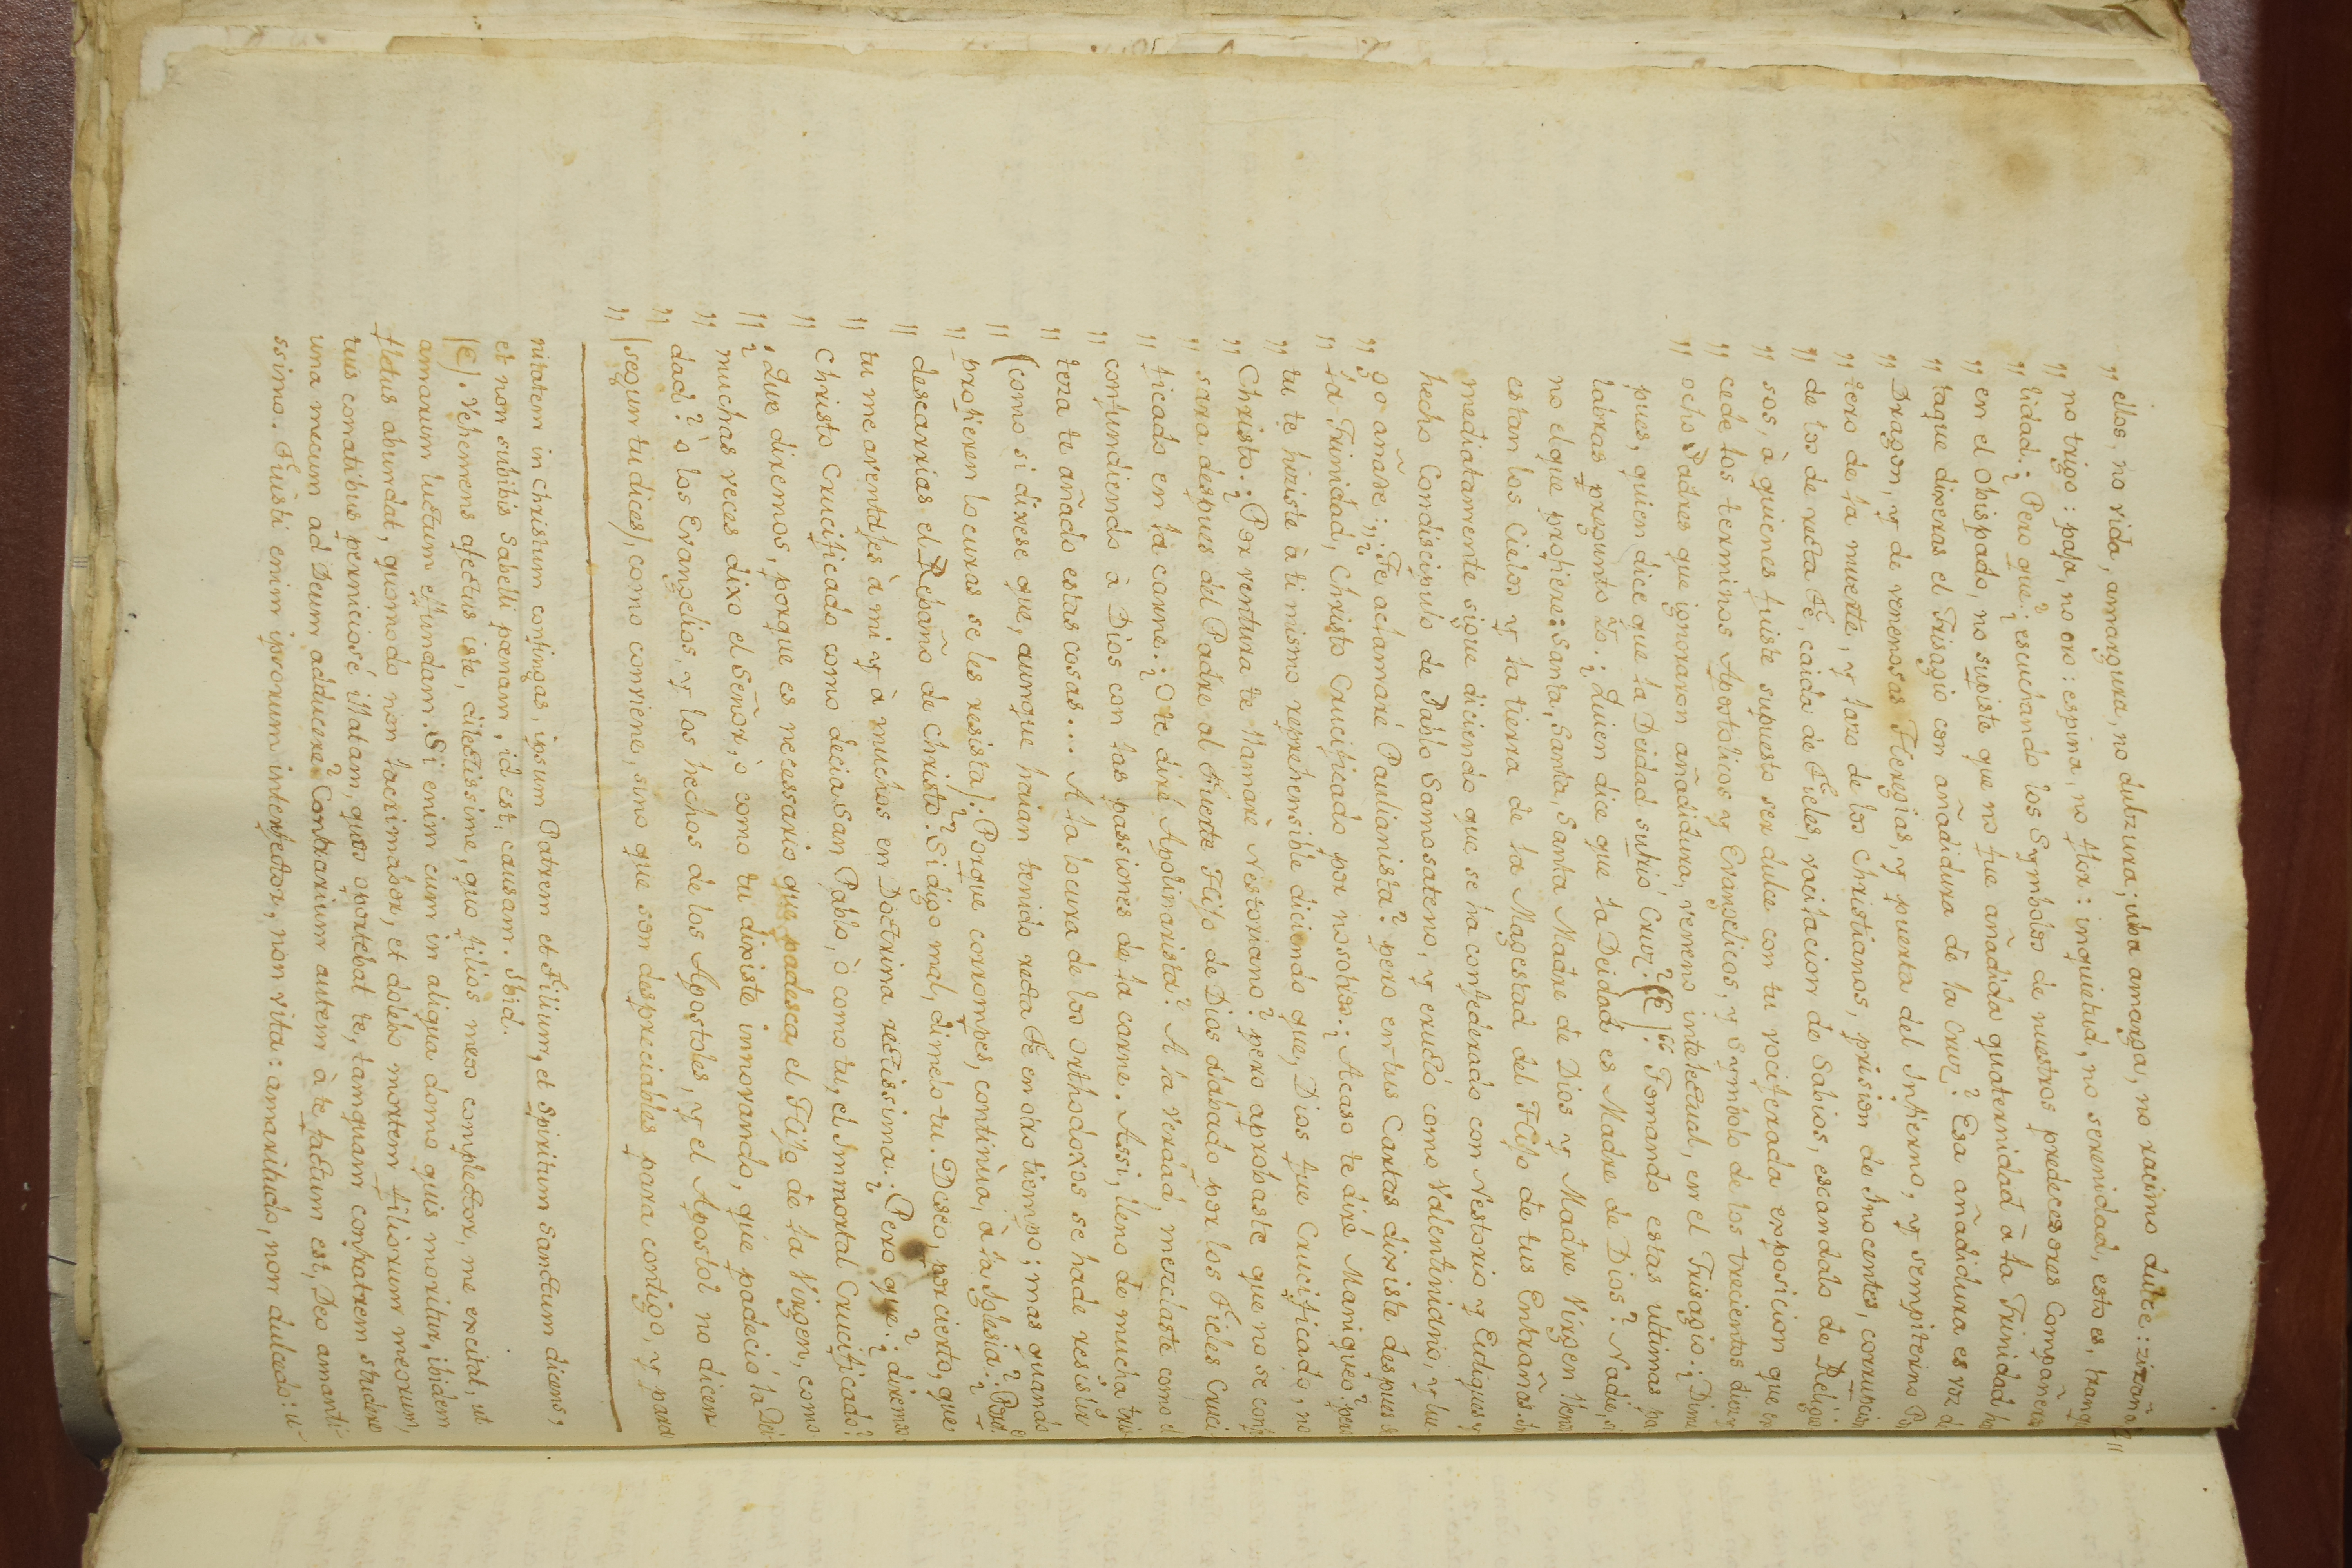 „ ellos, no vida, amargura, no dulzura; uba amarga, no racimo dulce: zizaña,
„ no trigo: paja, no oro: espina, no flor: inquietud, no serenidad, esto es, tranqui
„ lidad. ¿Pero que? escuchando los Symbolos de nuestros predecesores Compañeros
„ en el Obispado, no supiste que no fue añadida quaternidad à la Trinidad
„ taque dixeras el Trisagio con añadidura de la Cruz? Esa añadidura es voz de
„ Dragon, y de venenosas Heregias, y puerta del Infierno, y sempiterno
„ tero de la muerte, y lazo de los Christianos, prision de Inocentes, corrupcion
„ de los de recta Fè, caida de Fieles, vacilacion de Sabios, escandalo de Religio
„ sos, à quienes fuiste supuesto ser dulce con tu vociferada exposicion que ex
„ cede los terminos Apostolicos y Evangelicos, y Symbolo de los trecientos diez y
„ ocho Padres que ignoraron añadidura, veneno intelectual, en el Trisagio: ¿Dime
pues, quien dice que la Deidad sufrió Cruz? (C)“. Tomando estas ultimas pa-
labras pregunto yo: ¿Quien dice que la Deidad es Madre de Dios? Nadie, si
no el que profiere: Santa, Santa, Santa Madre de Dios y Madre Virgen llenos
estam los Cielos y la tierra de la Magestad del Hijo de tus Entrañas. In
mediatamente sigue diciendo que se ha confederado con Nestorio y Eutiques, y
hecho Condiscipulo de Pablo Samosateno, y eructó como Valentiniano, y lue-
„ go añade: „¿Te aclamaré Paulianista? pero en tus Cartas dixiste despues de
„ la Trinidad, Christo Crucificado por nosotros: ¿Acaso te diré Maniqueo? pero
„ tu te hiziste à ti mismo reprehensible diciendo que, Dios fue Crucificado, no
„ Christo. ¿Por ventura te llamarè Nestoriano? pero aprobaste que no se conf
„ sara despues del Padre al Fuerte Hijo de Dios alabado por los Fieles Cruci-
„ ficado en la carne. ¿O te diré Apolinarista? A la verdad, mezclaste como el
„ confundiendo à Dios con las passiones de la carne. Assi, lleno de mucha tris
„ teza te añado estas cosas... A la locura de los orthodoxos se hade resistir
„ (como si dixese que, aunque haian tenido recta Fe en otro tiempo; mas quando
„ profieren locuras se les resista). ¿Porque corrompes, continùa, à la Iglesia? ¿Porque
„ descarrias el Rebaño de Christo? Si digo mal, dimelo tu. Deseo, porcierto, que
„ tu me aventajes à mi y à muchos en Doctrina rectissima. ¿Pero que? ¿diremos
„ Christo Crucificado como decia San Pablo, ò como tu, el Immortal Crucificado?
„ ¿Que diremos, porque es necessario que padezca el Hijo de la Virgen, como
„ muchas veces dixo el Señor, ò como tu dixiste innovando, que padeció la Dei-
„ dad? ò los Evangelios, y los hechos de los Apostoles, y el Apostol no dicen
„ (segun tu dices), como conviene, sino que son despreciables para contigo, y para
nitatem in Christum confingas, ipsum Patrem et Filium, et Spiritum Sanctum dicens,
et non subibis Sabelli pœnam, id est, causam. Ibid.
(C). Vehemens afectus iste, dilectissime, quo filios meos complector, me excitat, ut
amarum luctum effundam. Si enim cum in aliqua domo quis moritur, ibidem
fletus abundat, quomodo non lacrimabor, et dolebo mortem filiorum meorum,
tuis conatibus perniciosé illatam, quos oportebat te, tamquam confratrem studere
una mecum ad Deum adducere? Contrarium autem à te factum est, Deo amanti-
ssimo. Fuisti enim ipsorum interfector, non vita: amaritudo, non dulcedo: u-